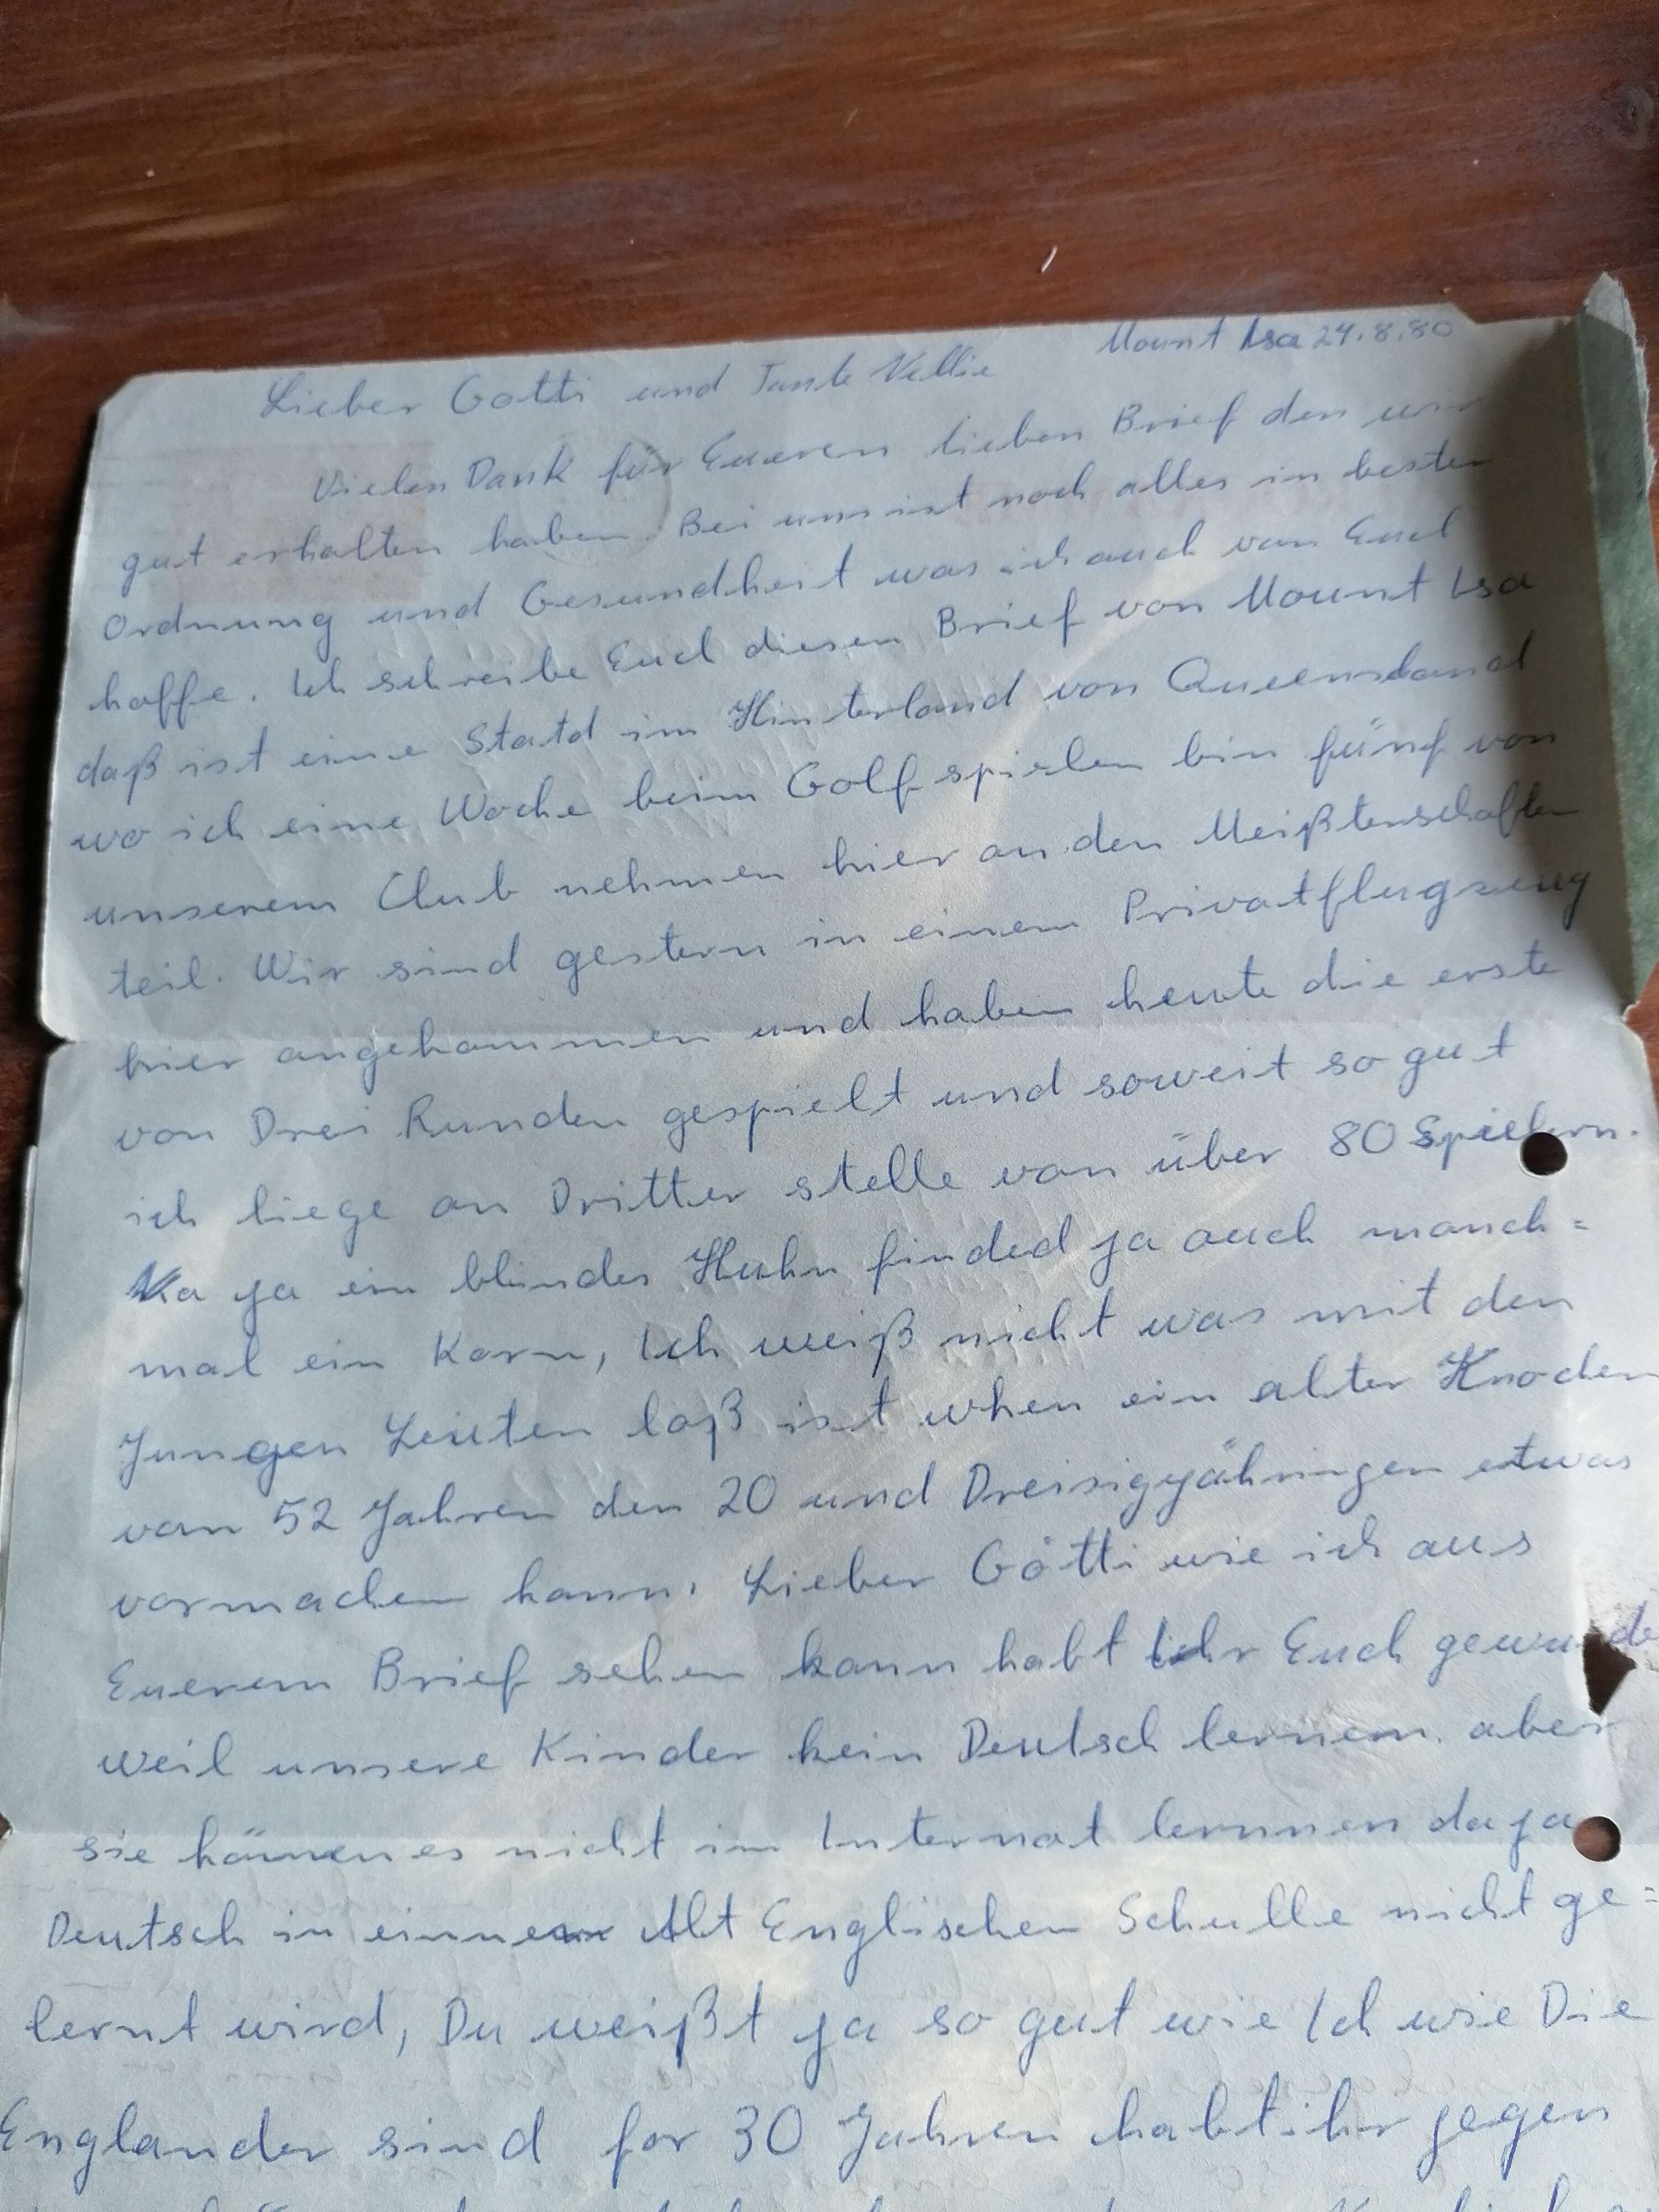 Mount Isa 24.8.80
Lieber Gotti und Tante Nellie
Vielen Dank für Eueren lieben Brief den wir
gut erhalten haben. Bei uns ist noch alles in bester
Ordnung und Gesundheit was ich auch von Euch
hoffe. Ich schreibe Euch diesen Brief von Mount Isa
daß ist eine Statd im Hinterland von Queensland
wo ich eine Woche beim Golf spielen bin fünf von
unserem Club nehmen hier an den Meißterschaften
teil. Wir sind gestern in einem Privatflugzeug
hier angekommen und haben heute die erste
von Drei Runden gespielt und soweit so gut
ich liege an Dritter stelle von über 80 Spielern.
Na ja ein blindes Huhn finded ja auch manch=
mal ein Korn, Ich weiß nicht was mit den
Jungen Leuten loß ist when ein alter Knochen
von 52 Jahren den 20 und Dreisigjähringen etwas
vormachen kann. Lieber Götti wie ich aus
Euerem Brief sehen kann habt Ihr Euch
weil unsere Kinder kein Deutsch lernen aber
sie können es nicht im Internat lernnen da ja
Deutsch in einner Alt Englischen Schulle nicht ge=
lernt wird, Du weißt ja so gut wie Ich wie Die
Englander sind for 30 Jahren habt ihr gegen